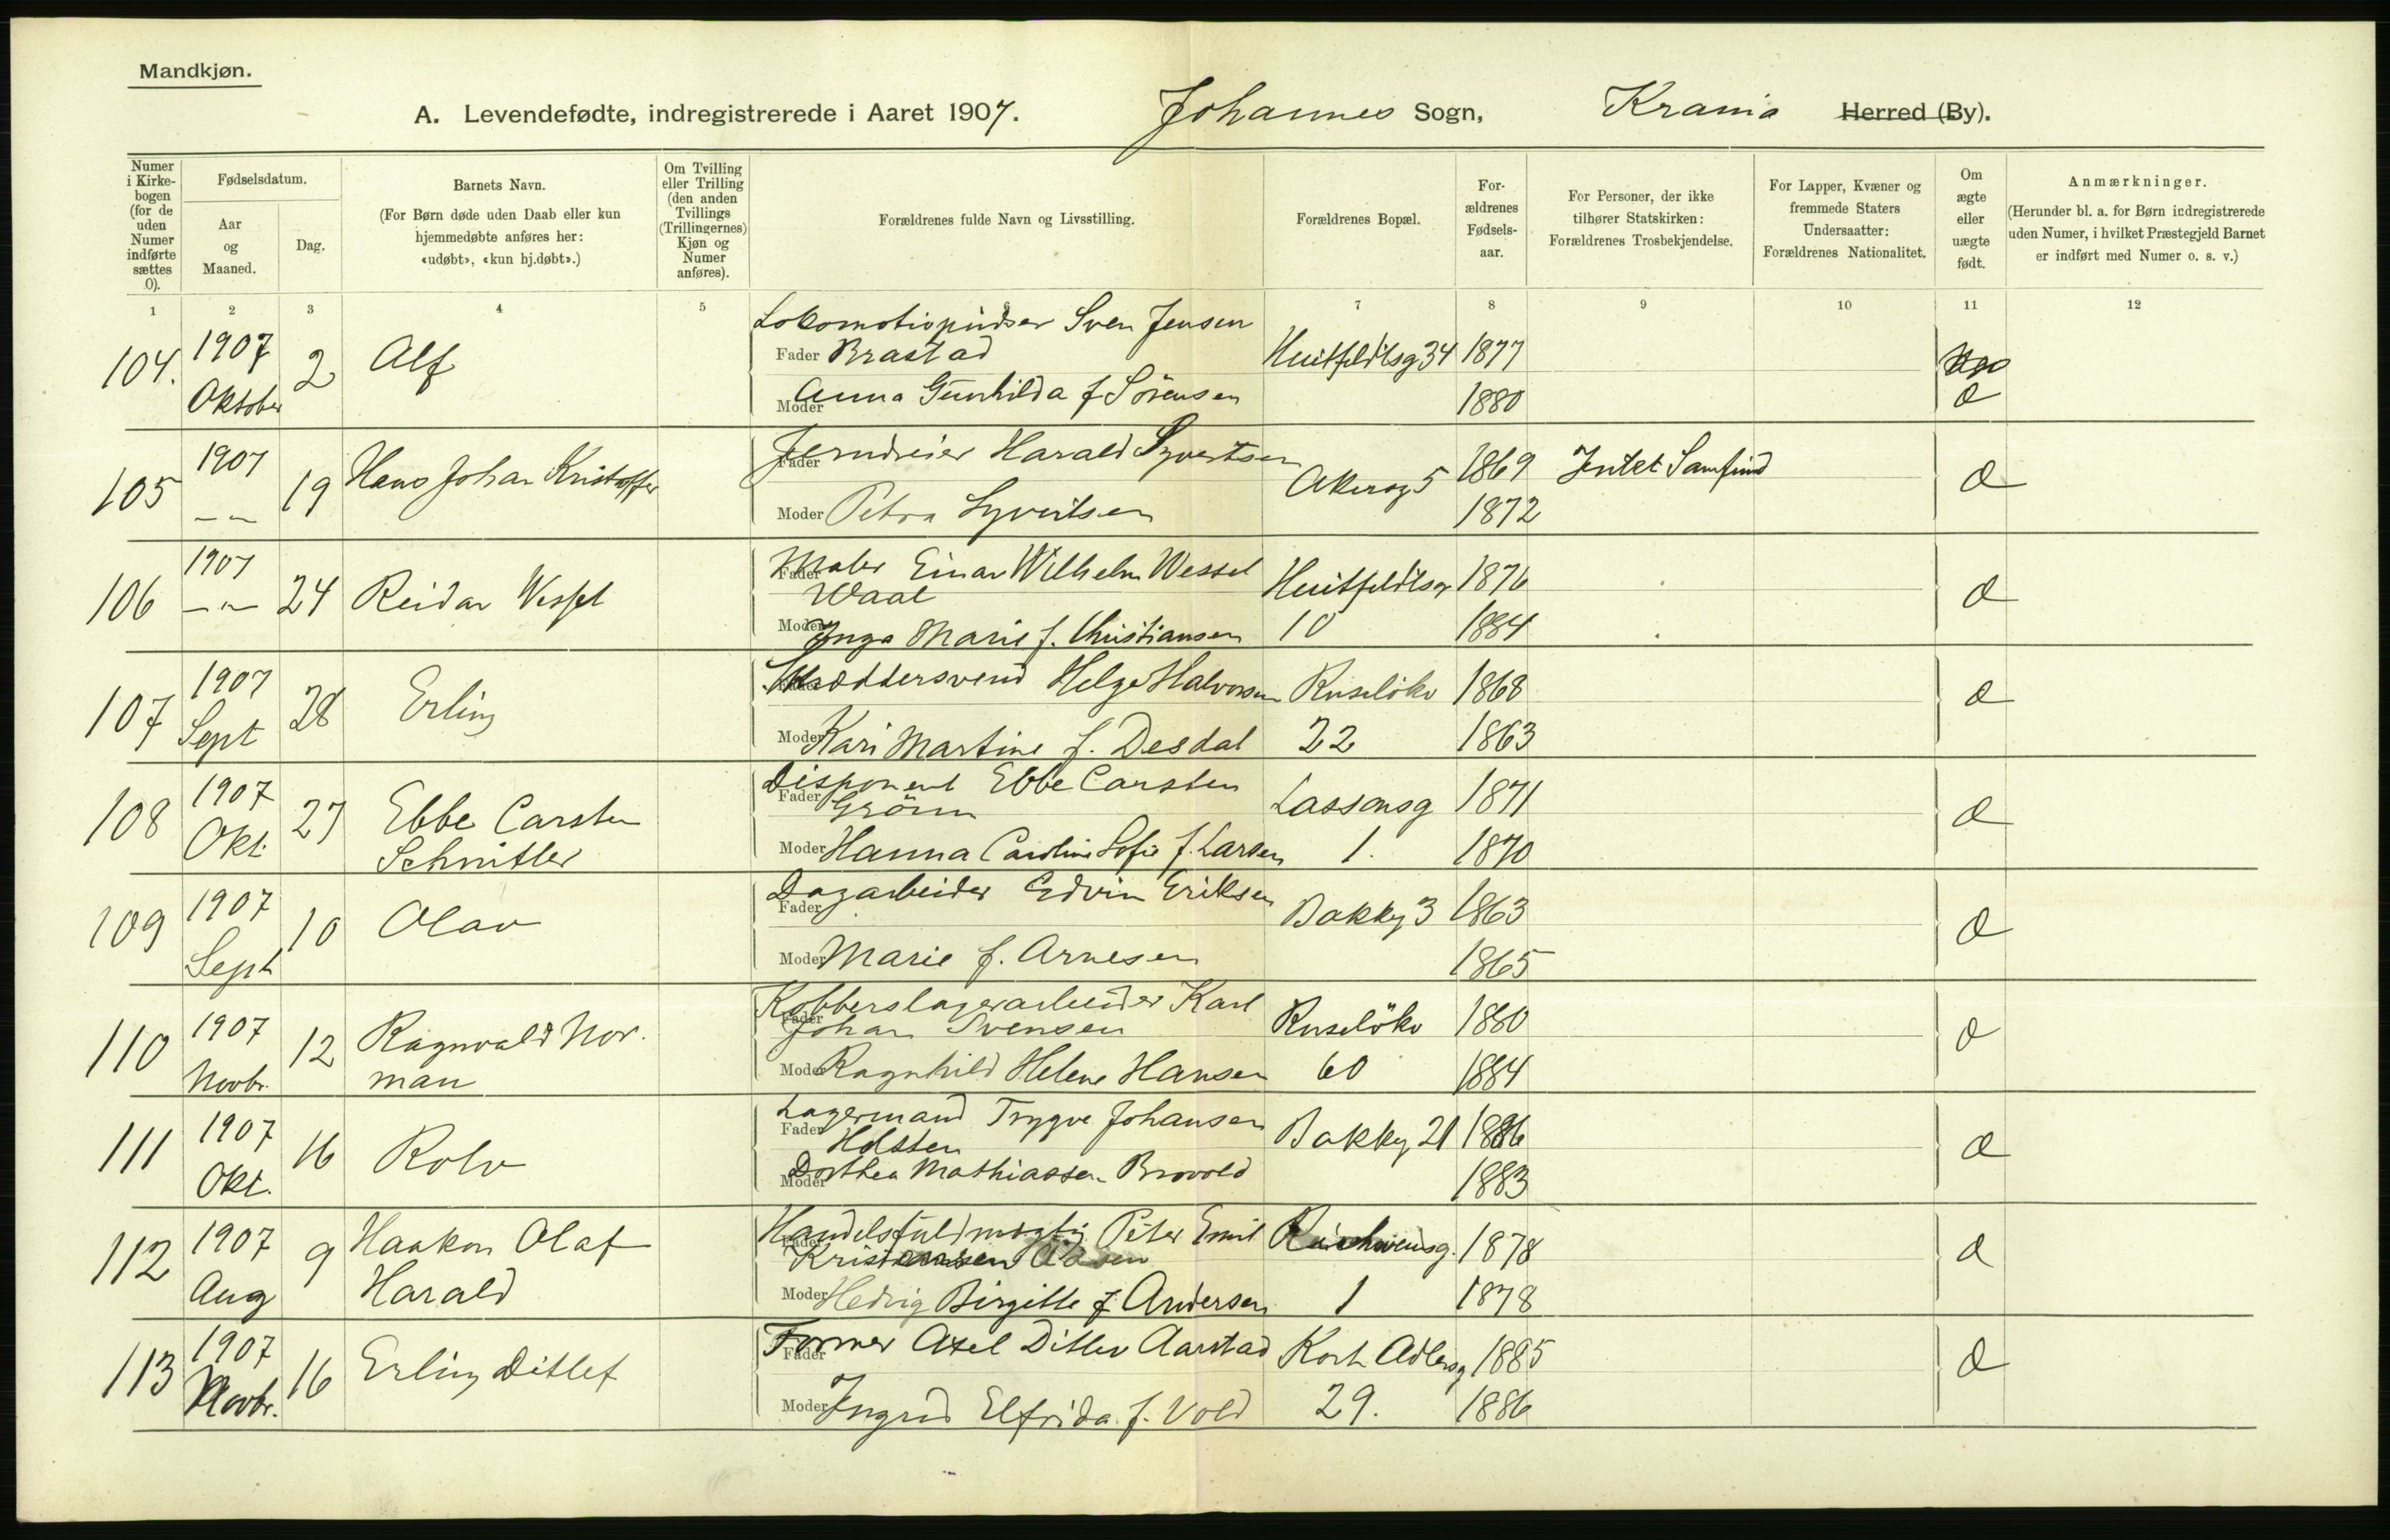 Mandkjøn.
A. Levendefødte, indregistrerede i Aaret 1907. Johannes Sogn, Krania Herred (By).
Numer i Kirkebogen (for de uden Numer indførte sættes 0).
Fødselsdatum.
Aar og Maaned.
Dag.
Barnets Navn.
(For Børn døde uden Daab eller kun hjemmedøbte anføres her: «udøbt», «kun hj.døbt».)
Om Tvilling eller Trilling (den anden Tvillings (Trillingernes) Kjøn og Numer anføres).
Forældrenes fulde Navn og Livsstilling.
Forældrenes Bopæl.
Forældrenes Fødselsaar.
For Personer, der ikke tilhører Statskirken: Forældrenes Trosbekjendelse.
For Lapper, Kvæner og fremmede Staters Undersaatter: Forældrenes Nationalitet.
Om ægte eller uægte født.
Anmærkninger.
(Herunder bl. a. for Børn indregistrerede uden Numer, i hvilket Præstegjeld Barnet er indført med Numer o. s. v.)
1 2 3 4 5 7 8 9 10 11 12
Lokomotivpudser Sven Jensen
104. 1907 Oktober 2 Alf Fader Brastad Huitfeldtsg 34 1877
Moder Anna Gunhilda f Sörensen 1880
105 1907 — „ — 19 Hans Johan Kristoffer Fader Jerndreier Harald Syvertsen Akersg 5 1869 Intet Samfund
Moder Petra Syvertsen 1872
106 1907 — „ — 24 Reidar Wessel Fader Maler Einar Wilhelm Wessel Huitfeldtsg 1876
Waal
Moder Inga Marie f. Christiansen 10 1884
107 1907 Sept 28 Erling Fader Skræddersvend Helge Halvorsen Ruselökv 1868
Moder Kari Martine f. Desdal 22 1863
108 1907 Okt. 27 Ebbe Carsten Schnitler Fader Disponent Ebbe Carsten Lassonsg 1871
Grönn
Moder Hanna Caroline Sofie f. Larsen 1. 1870
109 1907 Sept 10 Olav Fader Dagarbeider Edvin Eriksen Bakkg 3 1863
Moder Marie f. Arnesen 1865
110 1907 Novbr. 12 Ragnvald Nor. man Fader Kobberslagerarbeider Karl Ruselökv 1880
Johan Svensen
Moder Ragnhild Helene Hansen 60 1884
111 1907 Okt. 16 Rolv Fader Lagermand Trygve Johansen Bakkg 21 1886
Holsten
Moder Dorthea Mathiassen Brovold 1883
112 1907 Aug 9 Haakon Olaf Harald Fader Handelsfuldmægtig Peter Emil 1878
Moder Hedvig Birgitte f Andersen 1 1878
113 1907 Novbr. 16 Erling Ditlef Fader Former Axel Ditlev Aarstad Kort Adlersg 1885
Moder Ingrid Elfrida f. Vold 29. 1886